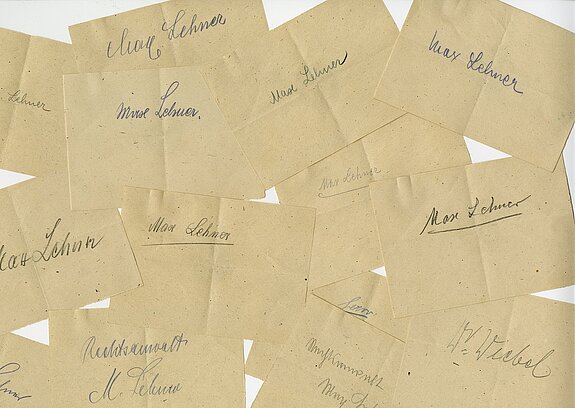 Max Lehner
Max Lehner
Max Lehner
Lehner
Max Lehner
Max Lehner.
Max Lehner
Max Lehner
Max Lehner
Max Lehner
Rechtsanwalt
M. Lehner
Rechtsanwalt
Max Le
Dr. Wiebel